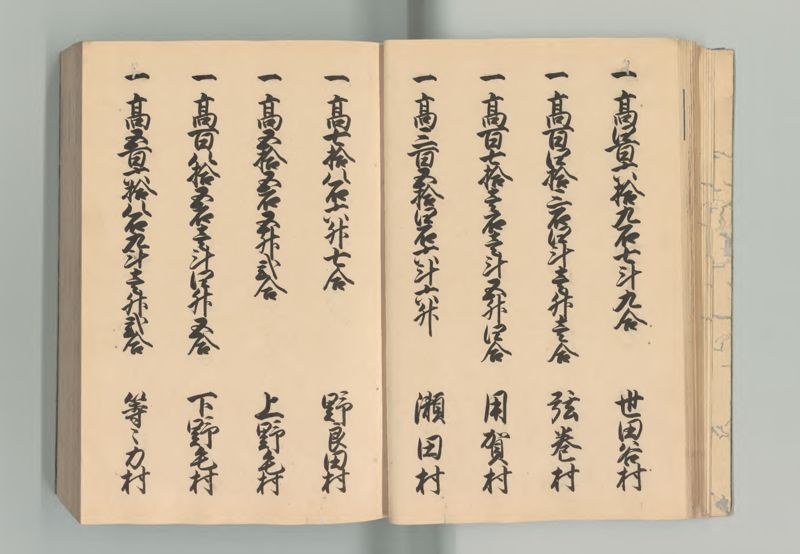 一 高四百六拾九石七斗九合 世田谷村
一 高百四拾三石四斗壱升壱合 弦巻村
一 高百七拾壱石壱斗五升四合 用賀村
一 高三百五拾四石六斗六升 瀬田村
一 高七拾八石六升七合 野良田村
一 高五拾五石五升弐合 上野毛村
一 高百八拾五石壱斗四升五合 下野毛村
一 高五百六拾八石九斗壱升弐合 等々力村